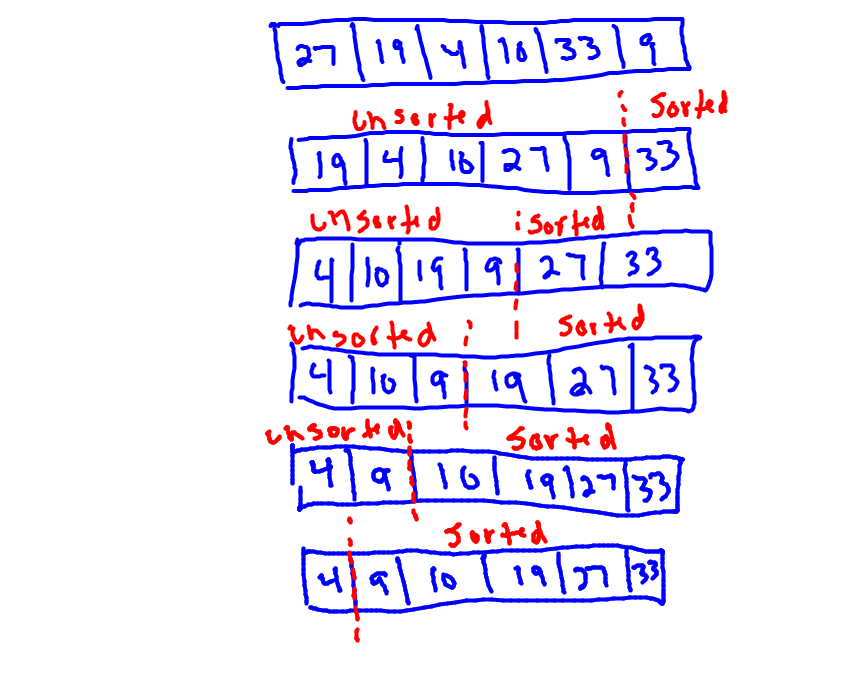 27 19 4 10 33 9
unsorted sorted
19 4 10 27 9 33
unsorted sorted
4 10 19 9 27 33
unsorted sorted
4 10 9 19 27 33
unsorted sorted
4 9 10 19 27 33
sorted
4 9 10 19 27 33